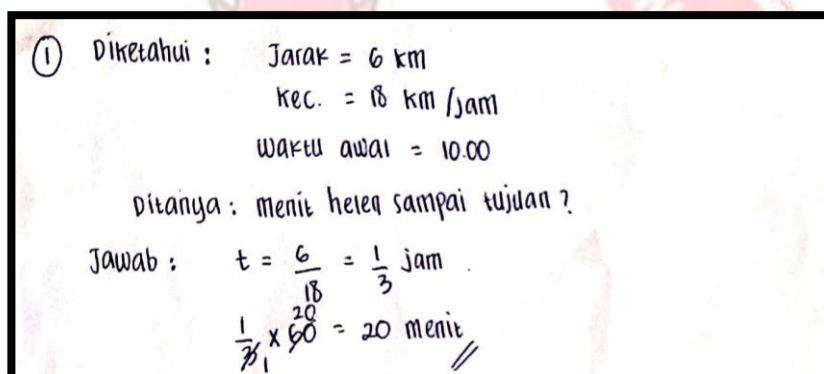 ① Diketahui : Jarak = 6 km
kec. = 18 km/jam
waktu awal = 10.00
Ditanya : menit helen sampai tujuan ?
Jawab : t = 6/18 = 1/3 jam
1/3 1 × 60 20 = 20 menit //